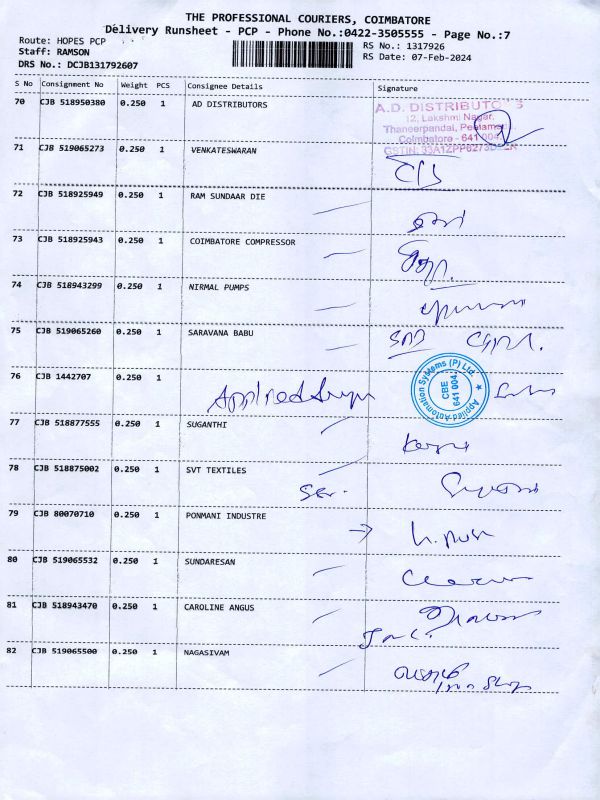 THE PROFESSIONAL COURIERS, COIMBATORE
Delivery Runsheet - PCP - Phone No.:0422-3505555 - Page No.:7
Route: HOPES PCP
RS No.: 1317926
Staff: RAMSON
RS Date: 07-Feb-2024
DRS No.: DCJB131792607
S No Consignment No Weight PCS Consignee Details Signature
70 CJB 518950380 0.250 1 AD DISTRIBUTORS
A.D. DISTRIBUTORS
12, Lakshmi Nagar,
Thaneerpandai, Peelamedu
Coimbatore - 641 004.
71 CJB 519065273 0.250 1 VENKATESWARAN
72 CJB 518925949 0.250 1 RAM SUNDAAR DIE
73 CJB 518925943 0.250 1 COIMBATORE COMPRESSOR
74 CJB 518943299 0.250 1 NIRMAL PUMPS
75 CJB 519065260 0.250 1 SARAVANA BABU
76 CJB 1442707 0.250 1
Applied
Applied Automation Systems (P) Ltd.
CBE
641 004.
77 CJB 518877555 0.250 1 SUGANTHI
78 CJB 518875002 0.250 1 SVT TEXTILES
79 CJB 80070710 0.250 1 PONMANI INDUSTRE
80 CJB 519065532 0.250 1 SUNDARESAN
81 CJB 518943470 0.250 1 CAROLINE ANGUS
82 CJB 519065500 0.250 1 NAGASIVAM